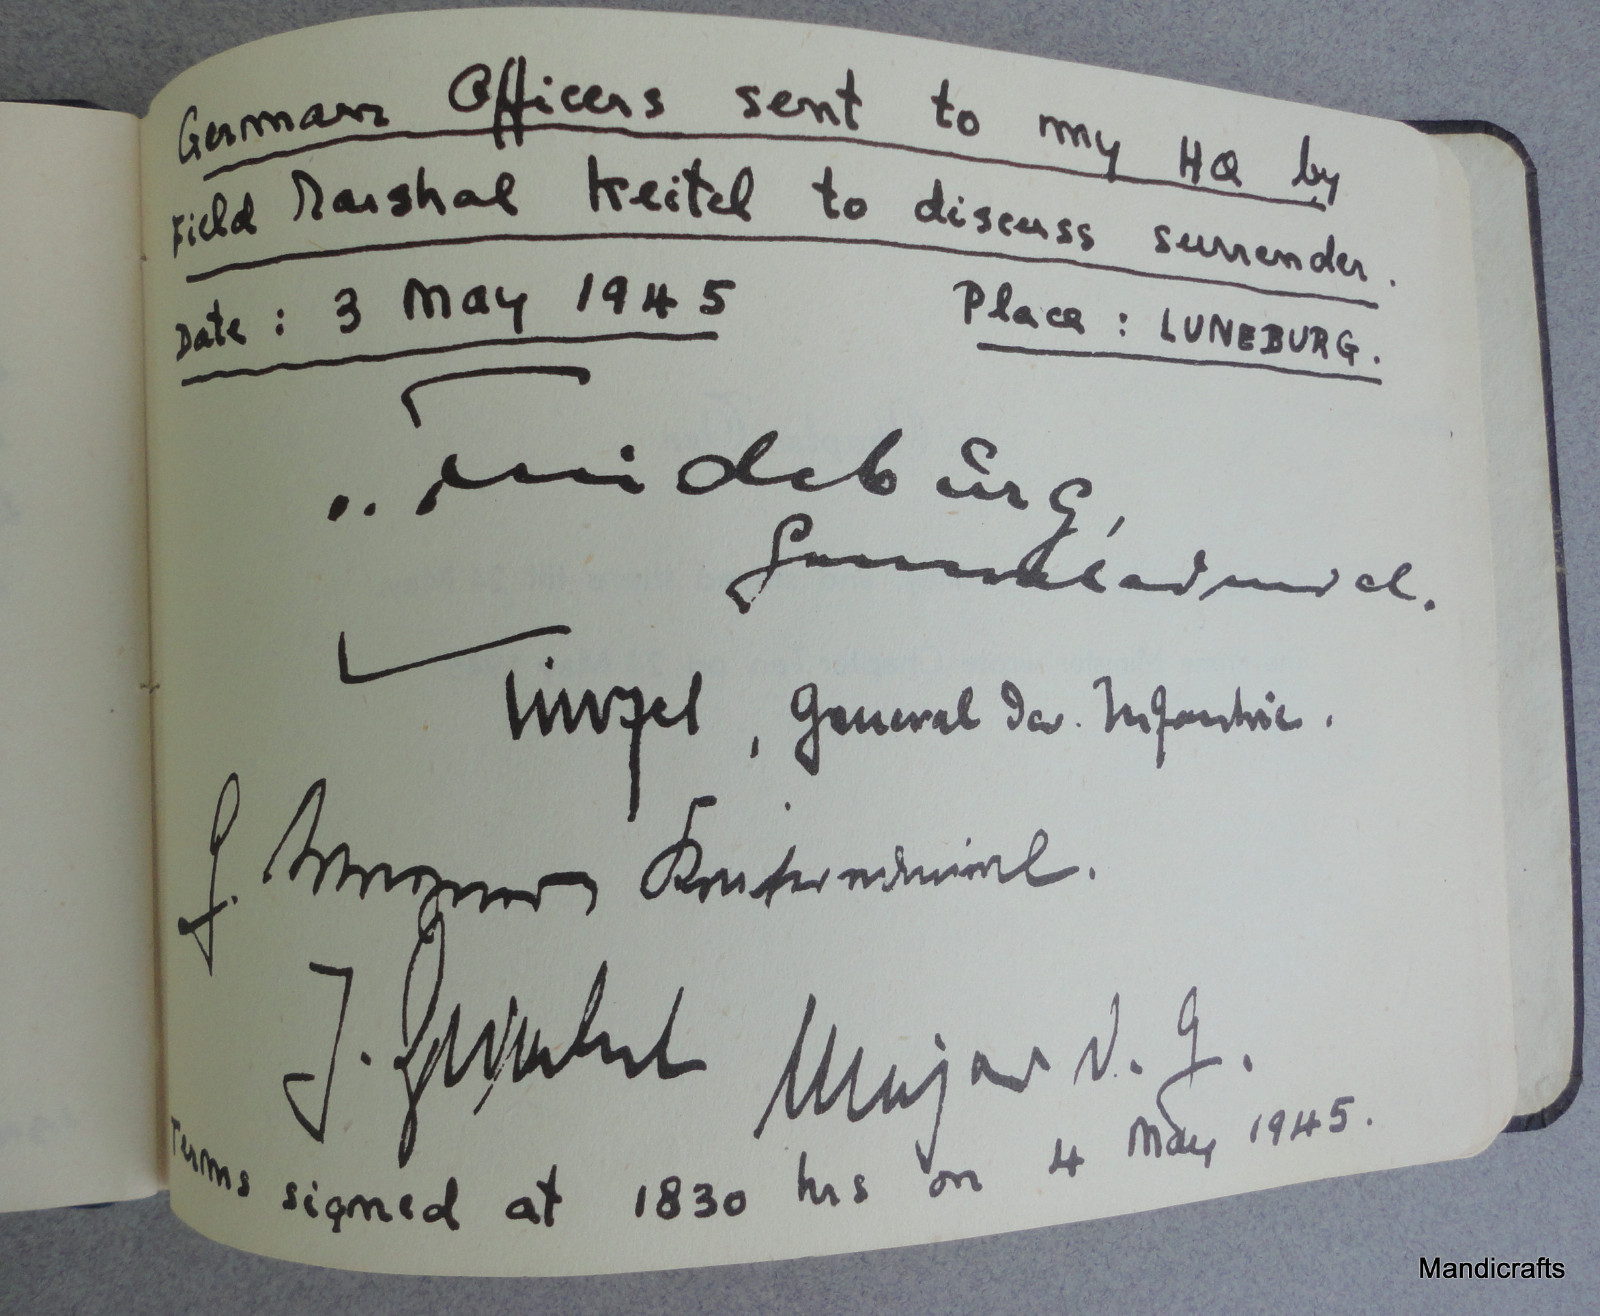 German Officers sent to my HQ by
Field Marshal Keitel to discuss surrender.
Date : 3 May 1945 Place : LUNEBURG.
v. Friedeburg,
Generaladmiral.
Kinzel, General der Infantrie.
G. Wagner Konteradmiral.
J. Major i. G.
Terms signed at 1830 hrs on 4 May 1945.
Mandicrafts